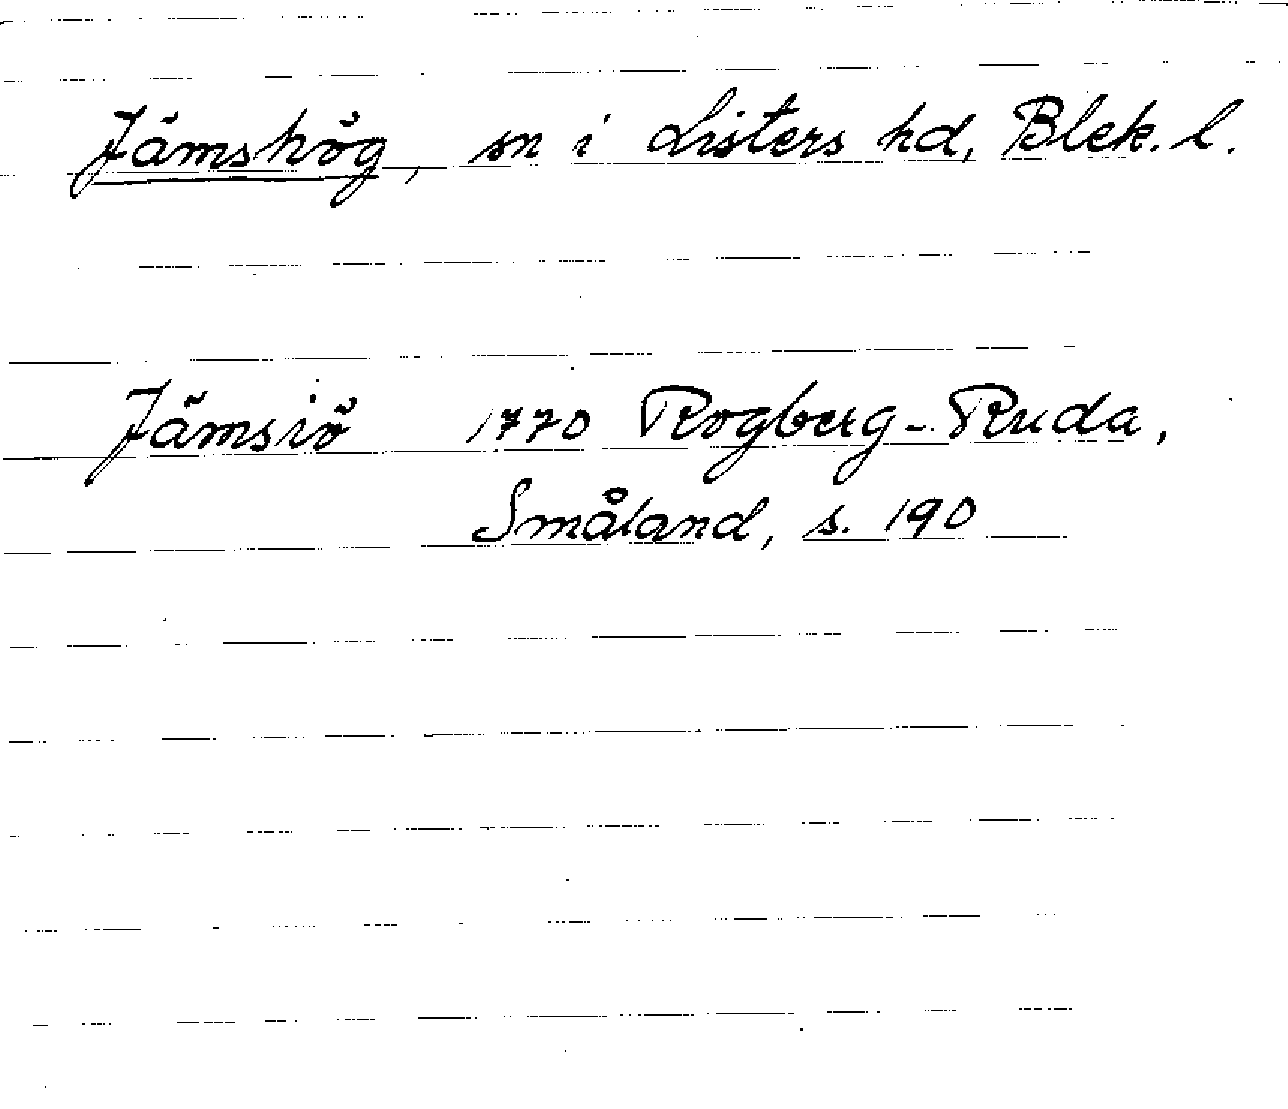 Jämshög, sn i Listers hd, Blek. l.
Jämsiö 1770 Rogberg-Ruda,
Småland, s. 190